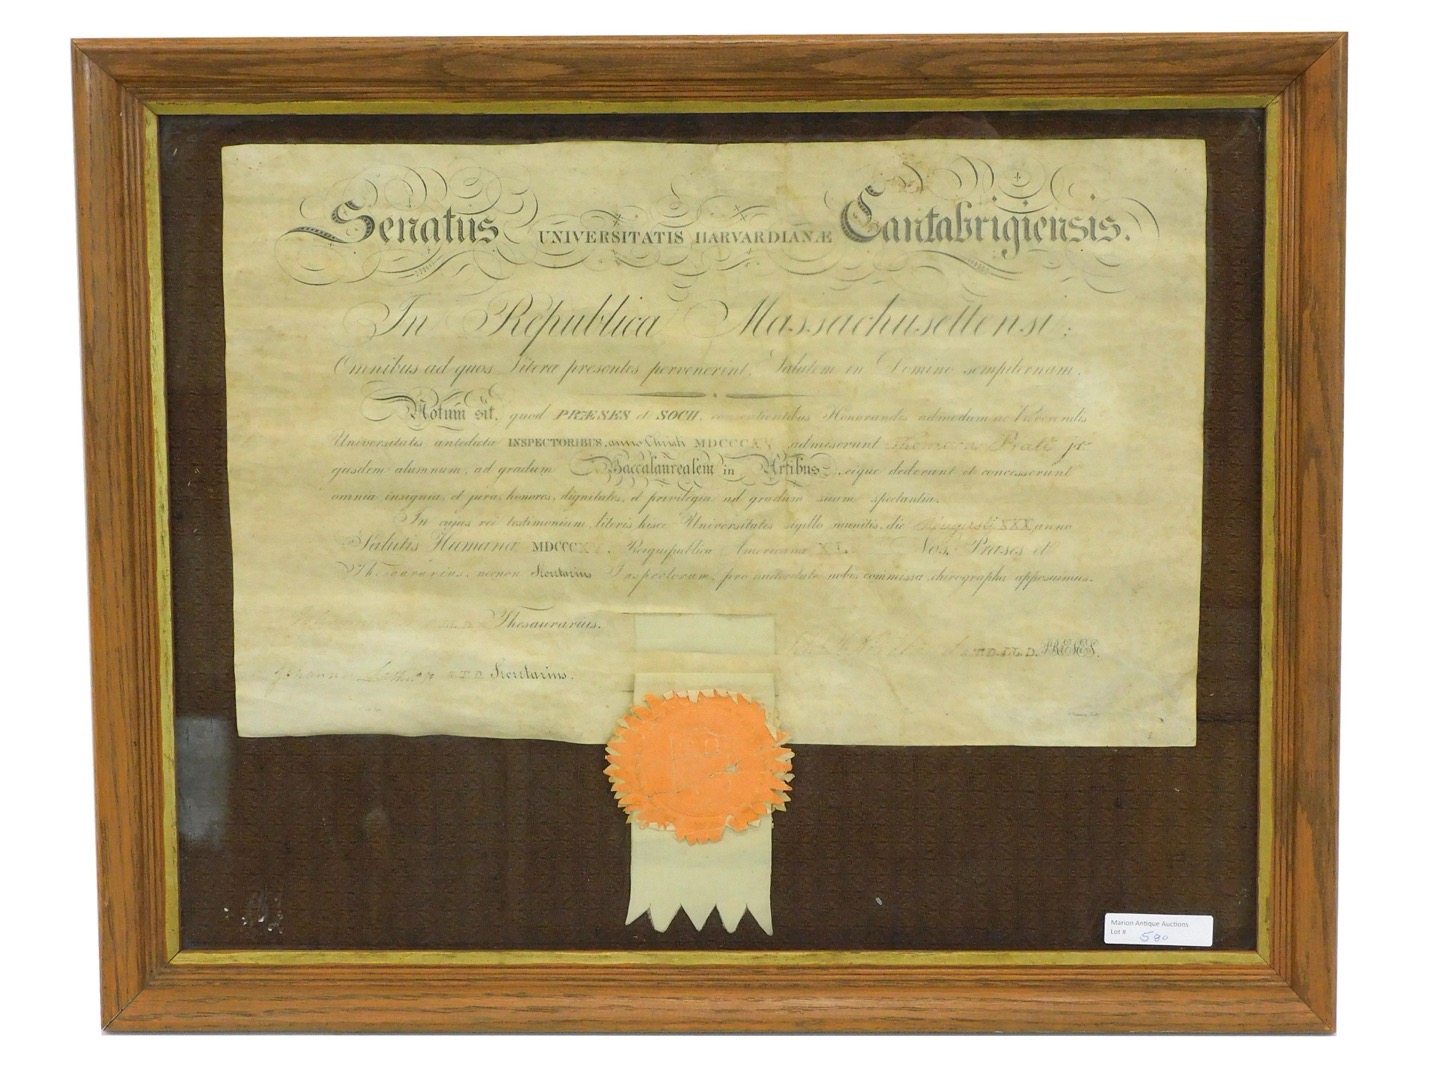 Senatus UNIVERSITATIS HARVARDIANÆ Cantabrigiensis.
In Republica Massachusettensi:
Omnibus ad quos litera presentes pervenerint, Salutem in Domino sempiternam.
Notum sit, quod PRÆSES et SOCII, consentientibus Honorandis admodum ac Reverendis
Universitatis antedicta INSPECTORIBUS, anno Christi MDCCCXV admiserunt Thomam Pratt jr
ejusdem alumnum, ad gradum Baccalaurealem in Artibus, eique dederunt et concesserunt
omnia insignia, et jura, honores, dignitates, et privilegia ad gradum suum spectantia.
In cujus rei testimonium, literis hisce Universitatis sigillo munitis, die Augusti XXX, anno
Salutis Humana MDCCCX Reiquepublica Americana XL. Nos, Præses et
Thesaurarius, necnon Secretarius Inspectorum, pro auctoritate nobis commissa, chirographa apposuimus.
Thesaurarius.
S.T.D. LL.D. PRÆSES.
Johannes Lathrop S.T.D. Secretarius.
Marion Antique Auctions
Lot # 590